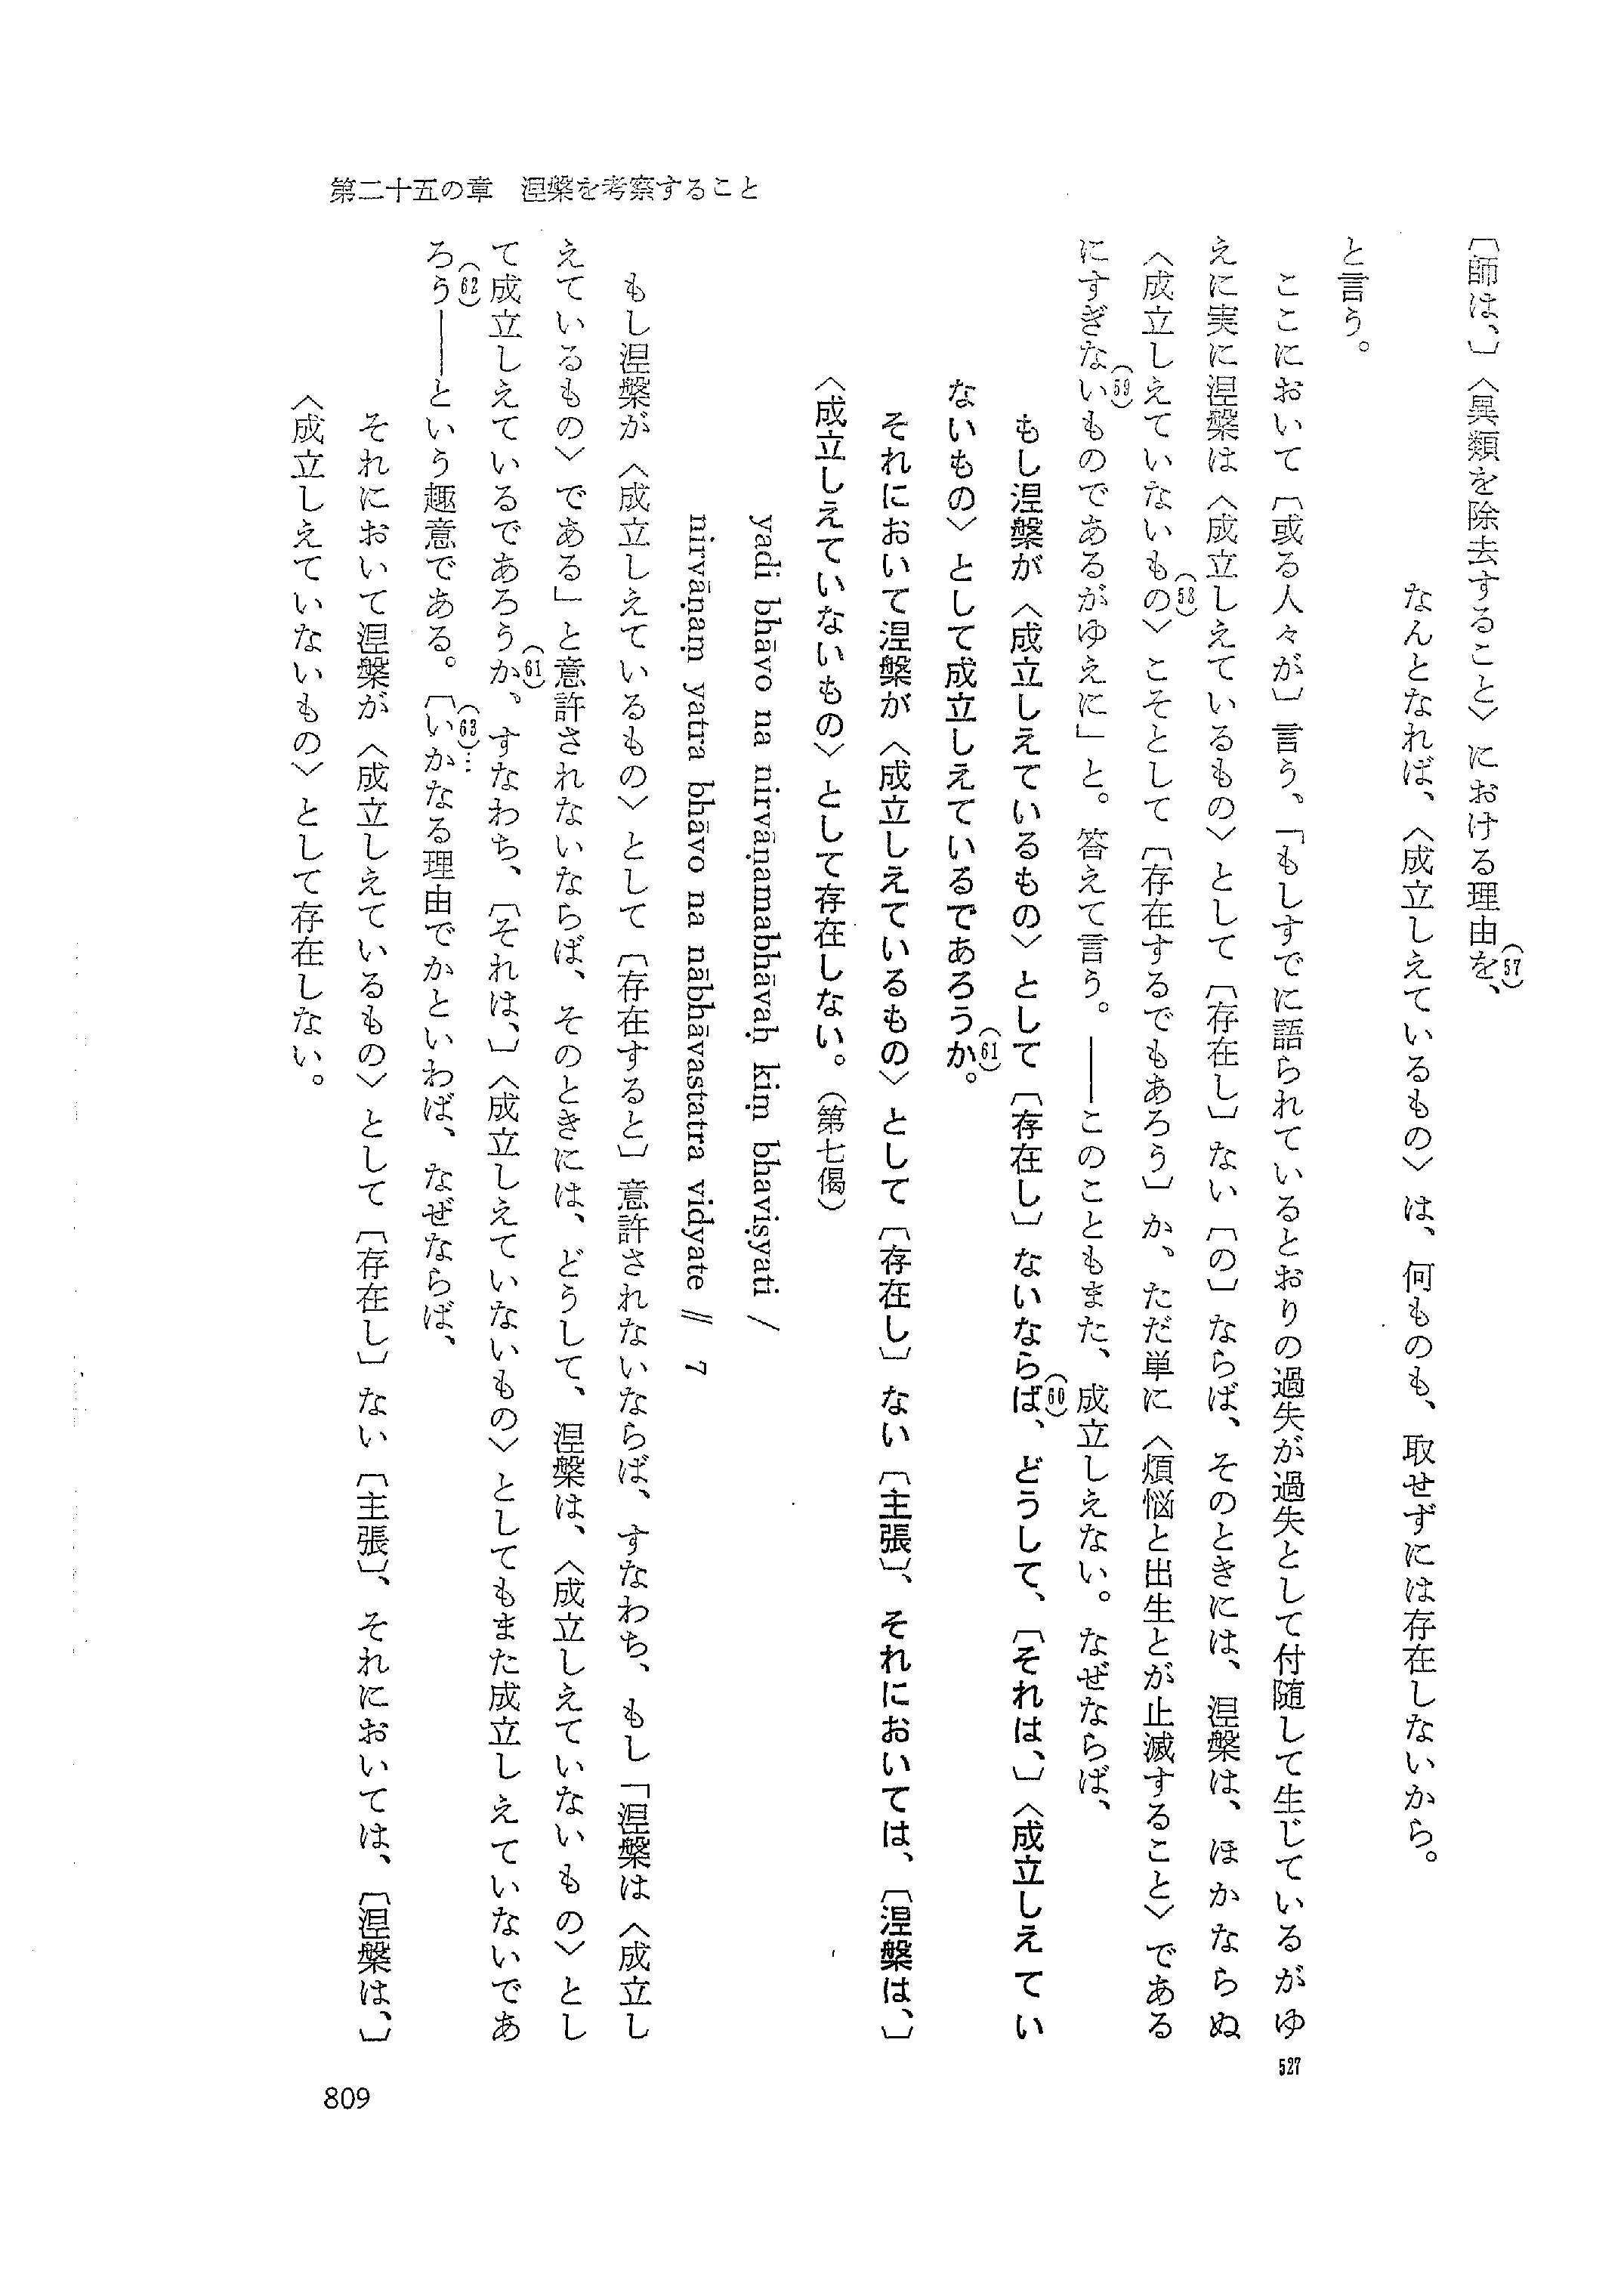 第二十五の章　涅槃を考察すること
〔師は、〕〈異類を除去すること〉における理由を、(57)
なんとなれば、〈成立しえているもの〉は、何ものも、取せずには存在しないから。
と言う。
ここにおいて〔或る人々が〕言う、「もしすでに語られているとおりの過失が過失として付随して生じているがゆ
えに実に涅槃は〈成立しえているもの〉として〔存在し〕ない〔の〕ならば、そのときには、涅槃は、ほかならぬ
〈成立しえていないもの(58)〉こそとして〔存在するでもあろう〕か、ただ単に〈煩悩と出生とが止滅すること〉である
にすぎない(59)ものであるがゆえに」と。答えて言う。――このこともまた、成立しえない。なぜならば、
もし涅槃が〈成立しえているもの〉として〔存在し〕ないならば(60)、どうして、〔それは、〕〈成立しえてい
ないもの〉として成立しえているであろうか(61)。
それにおいて涅槃が〈成立しえているもの〉として〔存在し〕ない〔主張〕、それにおいては、〔涅槃は、〕
〈成立しえていないもの〉として存在しない。（第七偈）
yadi bhāvo na nirvāṇamabhāvaḥ kiṃ bhaviṣyati /
nirvāṇaṃ yatra bhāvo na nābhāvastatra vidyate // 7
もし涅槃が〈成立しえているもの〉として〔存在すると〕意許されないならば、すなわち、もし「涅槃は〈成立し
えているもの〉である」と意許されないならば、そのときには、どうして、涅槃は、〈成立しえていないもの〉とし
て成立しえているであろうか(61)。すなわち、〔それは、〕〈成立しえていないもの〉としてもまた成立しえていないであ
ろう(62)――という趣意である。〔い(63)…かなる理由でかといわば、なぜならば、
それにおいて涅槃が〈成立しえているもの〉として〔存在し〕ない〔主張〕、それにおいては、〔涅槃は、〕
〈成立しえていないもの〉として存在しない。
527
809